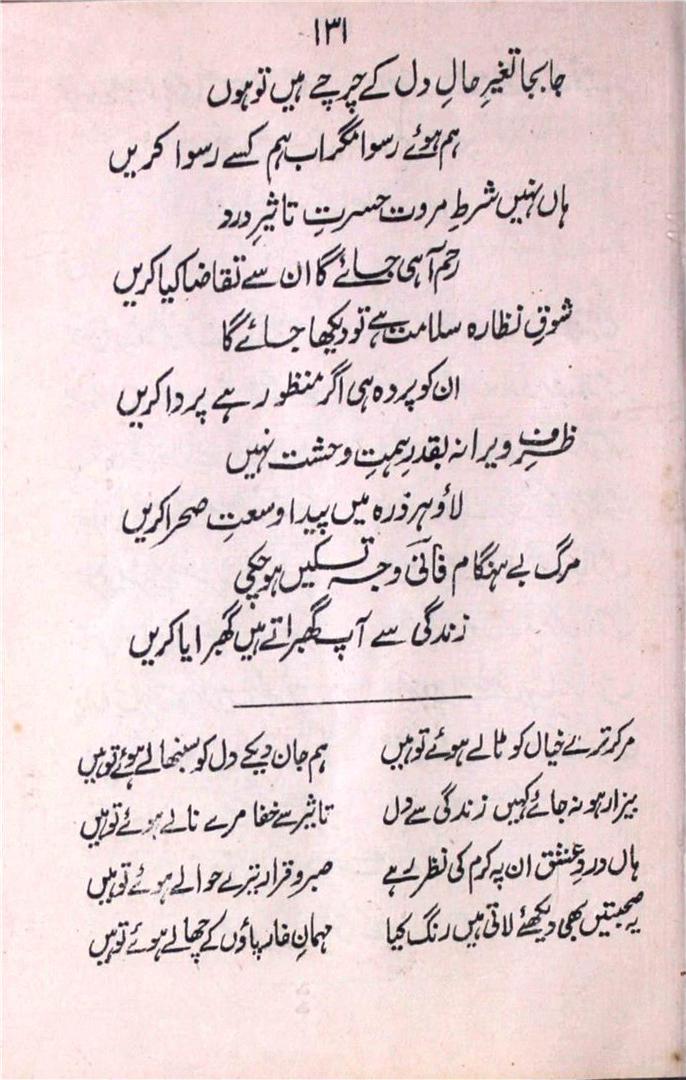 ۱۳۱
جابجا تغیرِ حالِ دل کے چرچے ہیں تو ہوں
ہم ہوئے رسوا مگر اب ہم کسے رسوا کریں
ہاں نہیں شرطِ مروت حسرتِ تاثیرِ درد
رحم آ ہی جائے گا ان سے تقاضا کیا کریں
شوقِ نظارہ سلامت ہے تو دیکھا جائے گا
ان کو پردہ ہی اگر منظور ہے پردا کریں
ظرفِ ویرانہ بقدرِ ہمتِ وحشت نہیں
لاؤ ہر ذرہ میں پیدا وسعتِ صحرا کریں
مرگ بے ہنگام فانیؔ وجہ تسکیں ہو چکی
زندگی سے آپ گھبراتے ہیں گھبرایا کریں
مرکر ترے خیال کو ٹالے ہوئے تو ہیں ہم جان دیکے دل کو سنبھالے ہوئے تو ہیں
بیزار ہو نہ جائے کہیں زندگی سے دل تاثیر سے خفا مرے نالے ہوئے تو ہیں
ہاں دردِ عشق ان پہ کرم کی نظر رہے صبر و قرار تیرے حوالے ہوئے تو ہیں
یہ صحبتیں بھی دیکھئے لاتی ہیں رنگ کیا مہمانِ خار پاؤں کے چھالے ہوئے تو ہیں